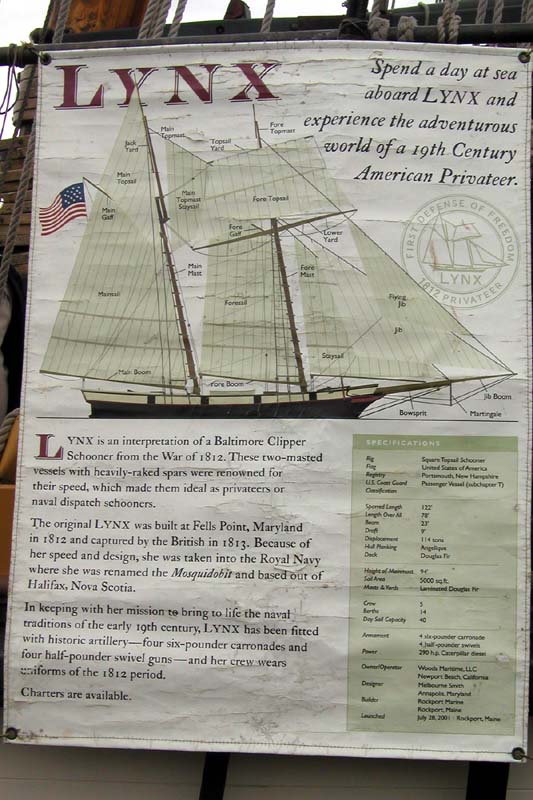 LYNX
Spend a day at sea
aboard LYNX and
experience the adventurous
world of a 19th Century
American Privateer.
Jack
Yard
Main
Topmast
Fore
Topmast
Topsail
Yard
Main
Topsail
Main
Topmast
Staysail
Fore Topsail
Main
Gaff
Fore
Gaff
Lower
Yard
FIRST DEFENSE OF FREEDOM
LYNX
1812 PRIVATEER
Main
Mast
Fore
Mast
Mainsail
Foresail
Flying
Jib
Jib
Staysail
Main Boom
Fore Boom
Jib Boom
Bowsprit
Martingale
LYNX is an interpretation of a Baltimore Clipper
Schooner from the War of 1812. These two-masted
vessels with heavily-raked spars were renowned for
their speed, which made them ideal as privateers or
naval dispatch schooners.
The original LYNX was built at Fells Point, Maryland
in 1812 and captured by the British in 1813. Because of
her speed and design, she was taken into the Royal Navy
where she was renamed the Mosquidobit and based out of
Halifax, Nova Scotia.
In keeping with her mission to bring to life the naval
traditions of the early 19th century, LYNX has been fitted
with historic artillery—four six-pounder carronades and
four half-pounder swivel guns—and her crew wears
uniforms of the 1812 period.
Charters are available.
SPECIFICATIONS
Rig Square Topsail Schooner
Flag United States of America
Registry Portsmouth, New Hampshire
U.S. Coast Guard Passenger Vessel (subchapter T)
Classification
Sparred Length 122'
Length Over All 78'
Beam 23'
Draft 9'
Displacement 114 tons
Hull Planking Angelique
Deck Douglas Fir
Height of Mainmast 94'
Sail Area 5000 sq.ft.
Masts & Yards Laminated Douglas Fir
Crew 5
Berths 14
Day Sail Capacity 40
Armament 4 six-pounder carronade
4 half-pounder swivels
Power 290 h.p. Caterpillar diesel
Owner/Operator Woods Maritime, LLC
Newport Beach, California
Designer Melbourne Smith
Annapolis, Maryland
Builder Rockport Marine
Rockport, Maine
Launched July 28, 2001 · Rockport, Maine